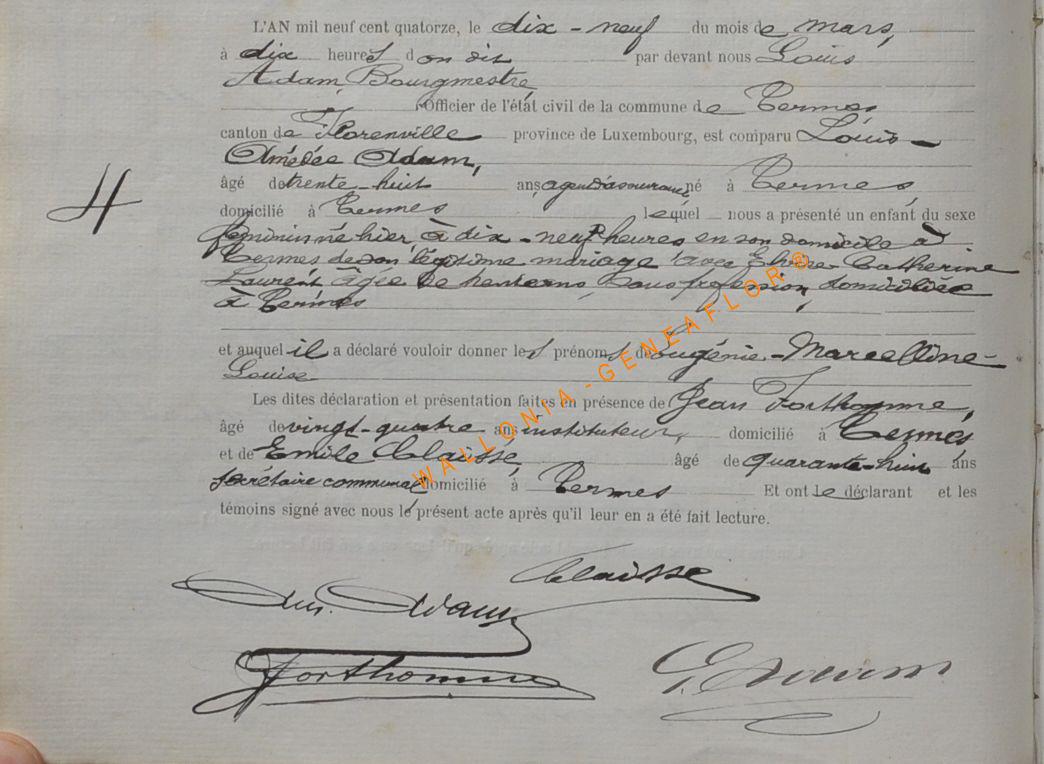 L'AN mil neuf cent quatorze, le dix-neuf du mois de mars,
à dix heures d on dit par devant nous Louis
Adam, Bourgmestre
Officier de l'état civil de la commune de Termes
canton de Florenville province de Luxembourg, est comparu Louis-
Amédée Adam,
âgé de trente-huit ans, agent d'assurance né à Termes
domicilié à Termes lequel nous a présenté un enfant du sexe
féminin né hier, à dix-neuf heures en son domicile à
Termes de son légitime mariage avec Catherine
Laurent âgée de ans, sans profession, domiciliée
à Termes
et auquel il a déclaré vouloir donner les prénoms de Eugénie-Marcelline-
Louise
Les dites déclaration et présentation faites en présence de Jean Forthomme,
âgé de vingt-quatre ans instituteur, domicilié à Termes
et de Emile Claisse, âgé de quarante-huit ans
secrétaire communal domicilié à Termes Et ont le déclarant et les
témoins signé avec nous le présent acte après qu'il leur en a été fait lecture.
4
WALLONIA-GENEAFLOR®
Claisse
Adam
Forthomme